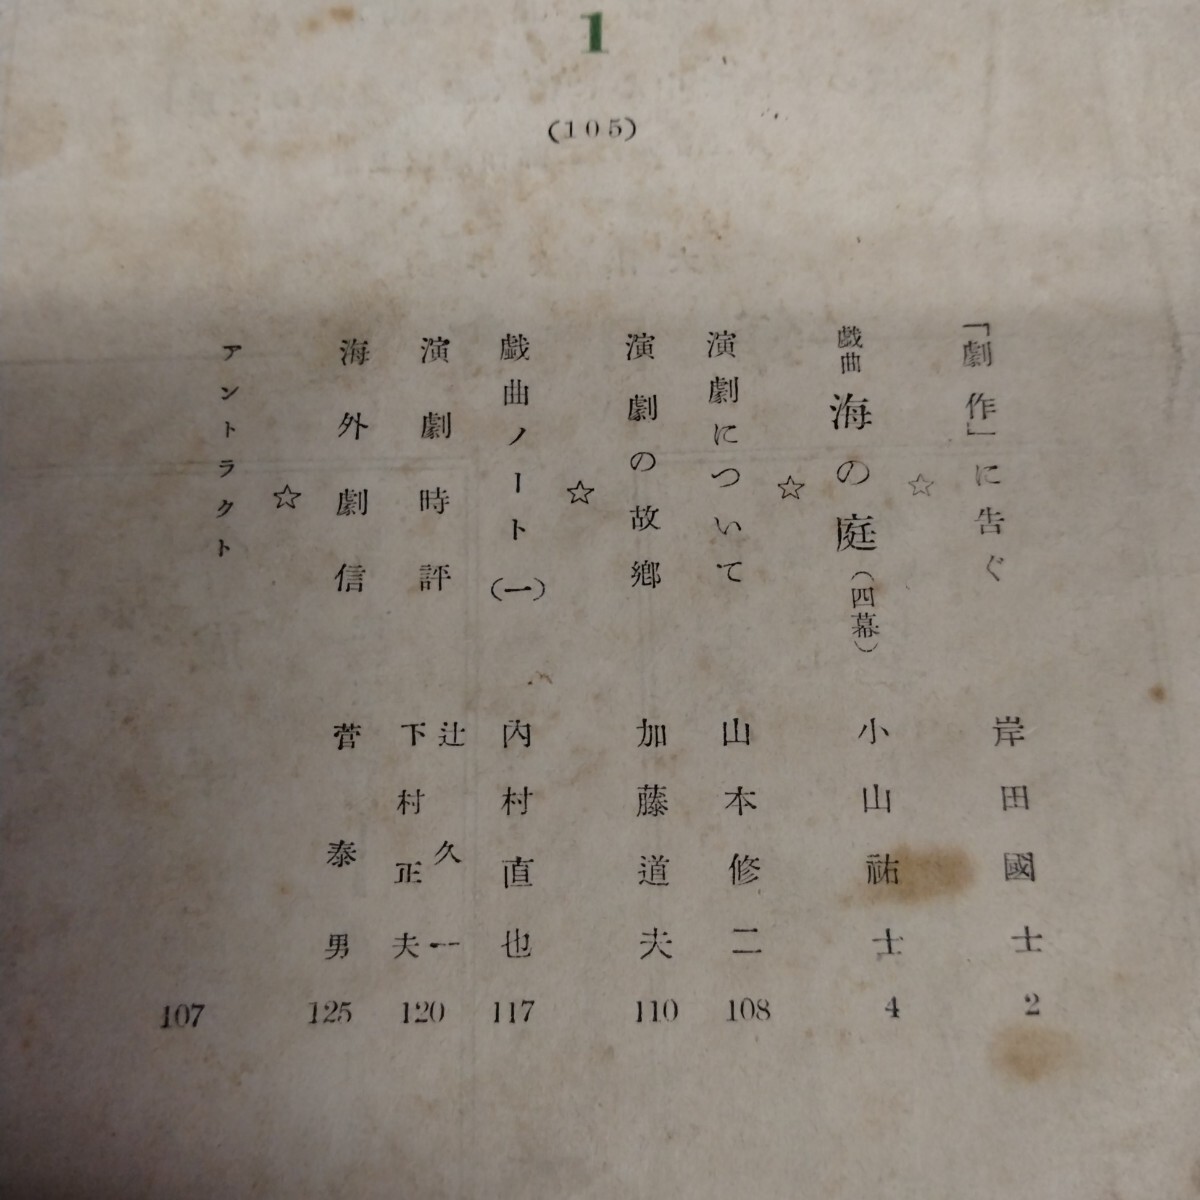 1
(105)
「劇作」に告ぐ 岸田國士 2
☆
戯曲 海の庭(四幕) 小山祐士 4
☆
演劇について 山本修二 108
演劇の故鄕 加藤道夫 110
☆
戯曲ノート(一) 內村直也 117
演劇時評 辻久一 下村正夫 120
海外劇信 菅泰男 125
☆
アントラクト 107